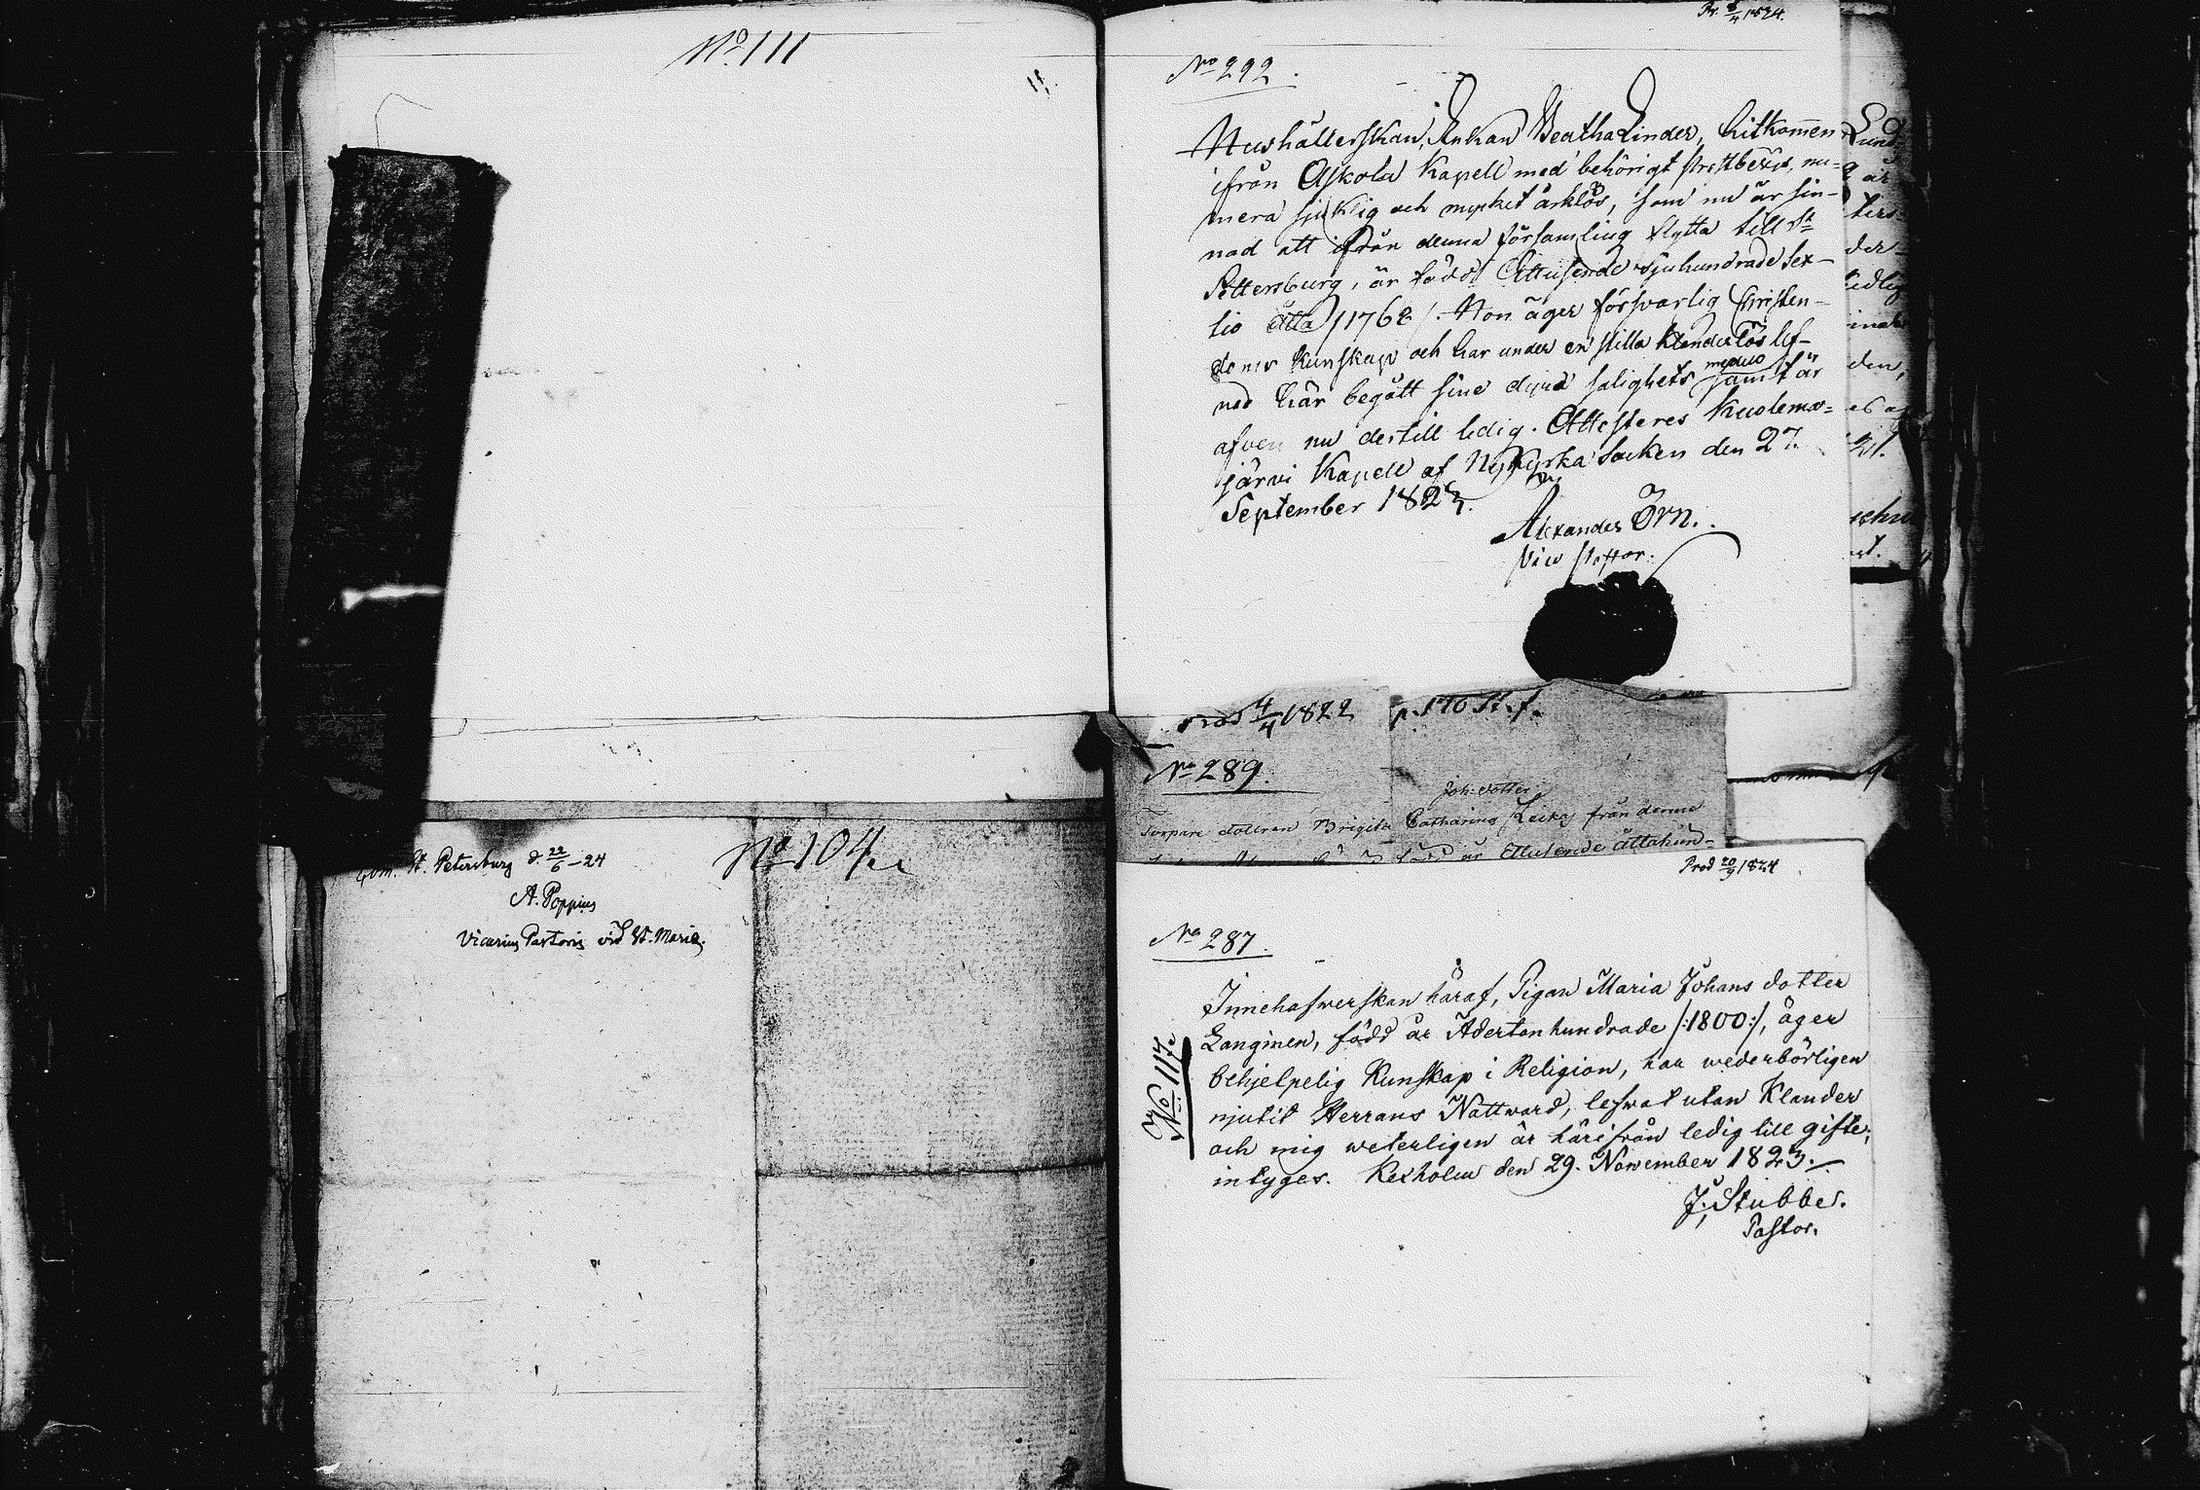 No. 111
11.
Com. St. Petersburg d. 22/6 – 24
A. Poppius
Vicarius Pastoris vid St. Maria.
No. 104.
Pr. 8/4 1824.
No 292.
Hushållerskan, Enkan Beatha Linder, hitkommen
ifrån Askola Kapell med behörigt prestbevis, nu-
mera sjuklig och mycket årklös, som nu är sin-
nad att ifrån denna församling flytta till St
Pettersburg, är född Ettusende sjuhundrade Sex-
tio åtta /1768/. Hon äger försvarlig Christen-
doms kunskap och har under en stilla klanderlös lef-
nad här begått sine dyra salighets medel samt är
afven nu dertill ledig. Attesteres Kuolema-
järvi Kapell af Nykyrka Socken den 27.
September 1823.
Alexander Örn.
Vice Pastor.
prod 4/4 1822
p. 170 St. f.
No 289.
Joh: dotter
Torpare dottren Brigita Catharina från denne
född år Ettusende åttahun-
Prod 20/9 1824
No 287.
No. 117.
Innehafwerskan häraf, Pigan Maria Johansdotter
Langinen, född år Adertonhundrade /:1800:/, äger
behjelpelig Kunskap i Religion, har wederbörligen
njutit Herrans Nattward, lefwat utan Klander
och mig weterligen är härifrån ledig till gifte;
intyges. Kexholm den 29. November 1823.
J. Stubbe.
Pastor.